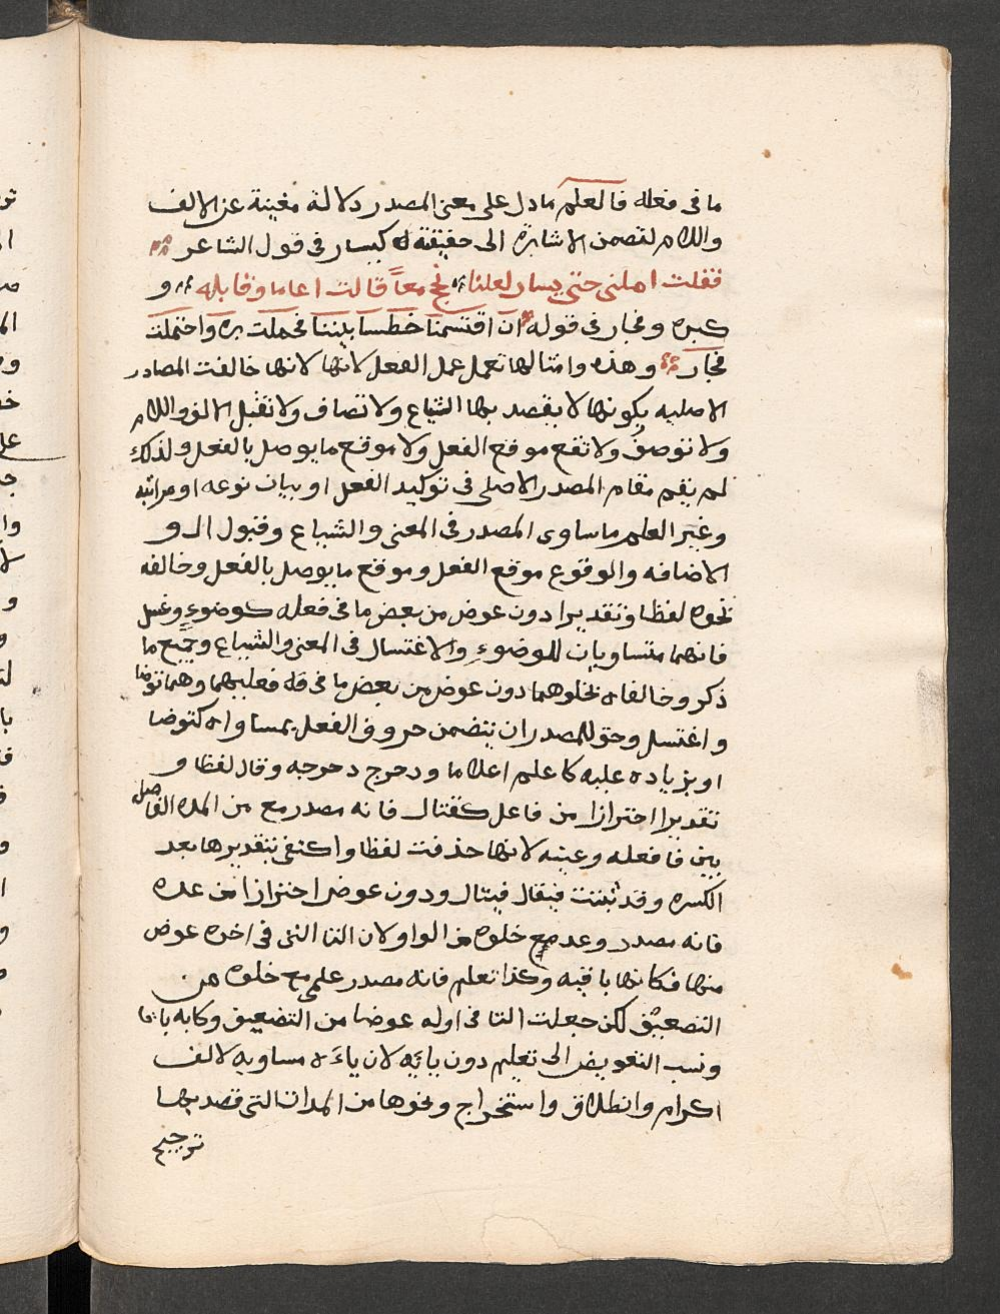 ما فى فعله فالعلم ما دل على معنى المصدر دلالة مغنية عن الالف
واللام لتضمن الاشارة الى حقيقته كيسار فى قول الشاعر
فقلت امكثى حتى يسار لعلنا نحج معا قالت اعاما وقابله و
كبره وفجار فى قوله ان اقتسمنا خطتينا بيننا فحملت بره واحتملت
فجار وهذه وامثالها تعمل عمل الفعل لانها لانها خالفت المصادر
الاصليه بكونها لا يقصد بها الشياع ولا تضاف ولا تقبل الالف واللام
ولا توصف ولا تقع موقع الفعل ولا موقع ما يوصل بالفعل ولذلك
لم يقم مقام المصدر الاصلى فى توكيد الفعل او بيان نوعه او مراته
وغير العلم ما ساوى المصدر فى المعنى والشياع وقبول ال و
الاضافه والوقوع موقع الفعل وموقع ما يوصل بالفعل وخالفه
بخلوه لفظا وتقديرا دون عوض من بعض ما فى فعله كوضوء وغسل
فانهما متساويان للوضوء والاغتسال فى المعنى والشياع وجميع ما
ذكر وخالفاه بخلوهما دون عوض من بعض ما فى فعليهما وهما توضا
واغتسل وحق المصدر ان يتضمن حروف الفعل بمساواه كتوضا
او بزياده عليه كاعلم اعلاما ودحرج دحرجه وقال لفظا و
تقديرا احترازا من فاعل كقتال فانه مصدر مع من المده الفاصل
بين فا فعله وعينه لانها حذفت لفظا واكتفى بتقديرها بعد
الكسره وقد تثبت فيقال قيتال ودون عوض احترازا من عده
فانه مصدر وعد مع خلوه من الواو لان التا التى فى اخره عوض
منها فكانها باقيه وكذا تعليم فانه مصدر علم مع خلوه من
التضعيف لكن جعلت التا فى اوله عوضا من التضعيف وكانه باق
ونسب التعويض الى تعليم دون يايه لان ياءه مساويه لالف
اكرام وانطلاق واستخراج ونحوها من المدات التى قصد بها
ترجيح